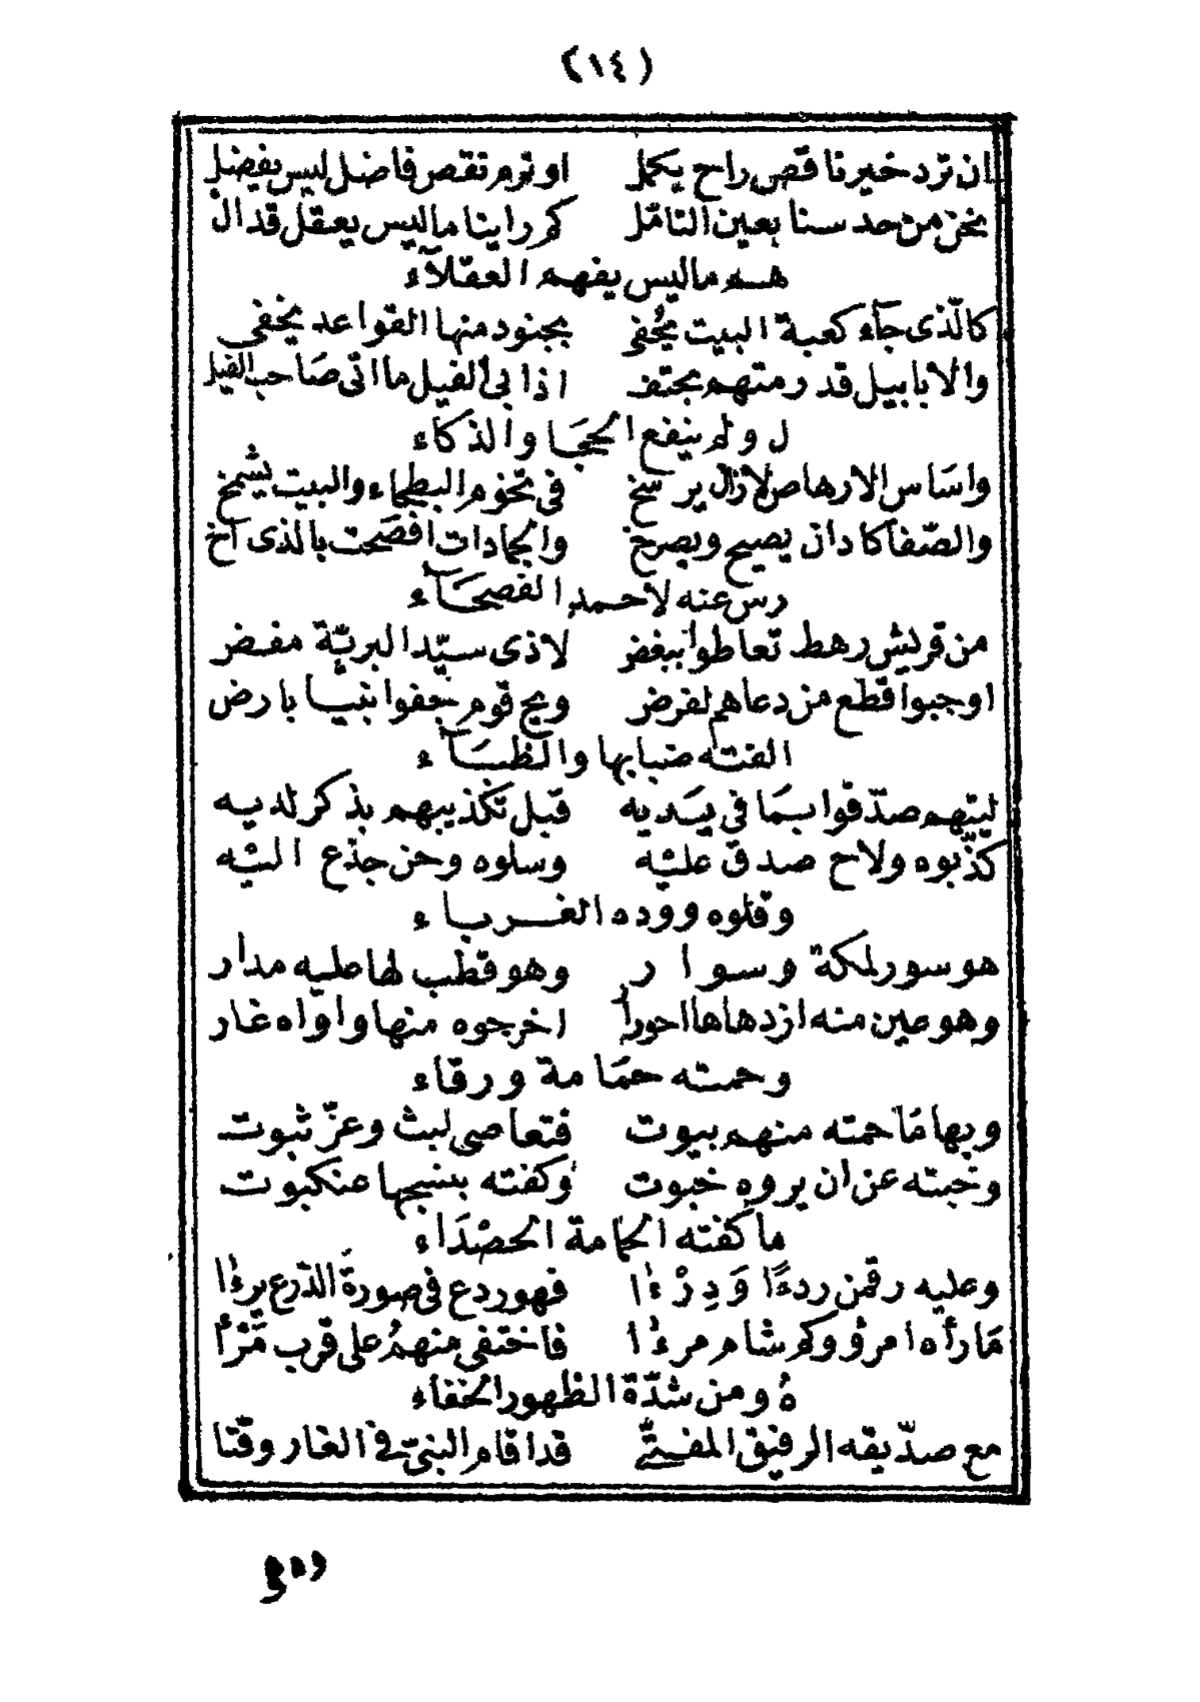 (١٤)
ان ترد خير ناقص راح يكمل او ترم نقص فاضل ليس يفضل
نحن من حدسنا بعين التامّل كم راينا ماليس يعقل قد ال
هـم ماليس يفهم العقلآء
كالّذى جآء كعبة البيت يخفى بجنود منها القواعد يخفى
والابابيل قد رمتهم بحتف اذا بى الفيل ما اتى صاحب الفيل
ل ولم ينفع الحجا والذكاء
واساس الارهاص لازال يرسخ فى تخوم البطحاء والبيت يشمخ
والصّفا كاد ان يصيح ويصرخ والجمادات افصحت بالذى اخ
رس عنه لاحمد الفصحآء
من قريش رهط تعاطوا ببغض لاذى سيّد البريّة مفض
اوجبوا قطع من دعاهم لفرض ويح قوم جفوا نبيا بارض
الفته ضبابها والظبآء
ليتهم صدّقوا بما فى يديه قبل تكذيبهم بذكر لديه
كذّبوه ولاح صدق عليه وسلوه وحن جذع اليه
وقلوه ووده الغرباء
هو سور لمكة وسوار وهو قطب لها عليه مدار
وهو عين منه ازدهاها احورار اخرجوه منها واواه غار
وحمته حمامة ورقاء
وبها ما حمته منهم بيوت فتعاصى لبث وعزّ ثبوت
وخبته عن ان يروه خبوت وكفته بنسجها عنكبوت
ما كفته الحمامة الحصداء
وعليه رقمن ردءًا وَدِرْءًا فهو ردع فى صورة الدّرع يرءا
مَا رأه امرؤ وكم شام مرءًا فاختفى منهمُ على قرب مَرْأ
هُ ومن شدّة الظهور الخفاء
مع صدّيقه الرفيق المفـتّى قد اقام النبىّ فى الغار وقتا